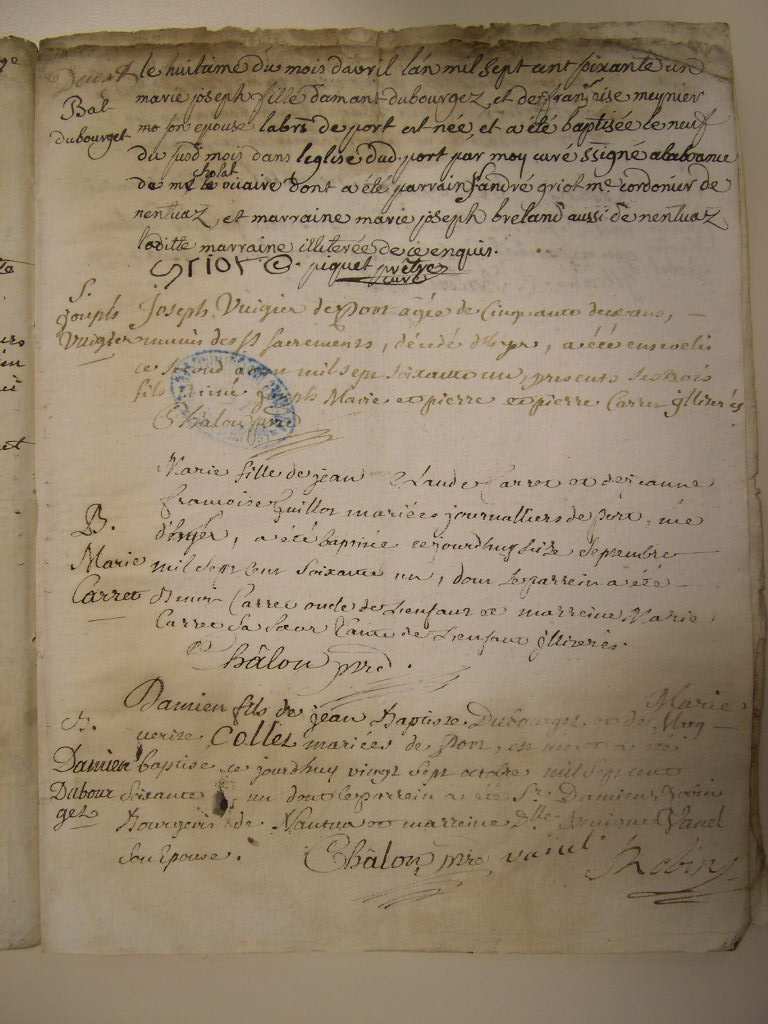 Bat
dubourget
le huitième du mois davril lan mil sept cent soixante un
marie joseph fille damant dubourgez et de françoise meynier
son epouse labrs de port est née, et a été baptisée le neuf
du susd mois dans leglise dud. port par moy curé ssigné alabsance
de mr cholat vicaire dont a été parrain andré griot me cordonier de
nentuaz, et marraine marie joseph breland aussi de nentuaz
laditte marraine illiterée de ce enquis.
griot piquet prêtre
curé
S.
joseph
Vuigier
Joseph Vuigier de port agée de Cinquante deux ans,
munis des St sacrements, décédé dhyer, a été ensevelis
ce mil sept soixante un, presents ses trois
fils joseph Marie et pierre et pierre Carret jlliterés
Châlon prre
B.
Marie
Carret
Marie fille de jean Claude Carret et de jeanne
francoise Guillot mariées journalliers de port, née
d'hyer, a été baptisée cejourdhuy seize septembre
mil sept cent soixante un, dont le parrein a été
Carret oncle de Lenfant et marreine Marie
Carret sa soeur tante de Lenfant jlliterés.
Châlon prre.
B.
Damien
Dubour
gez
Damien fils de jean Baptiste Dubourget et de Marie
Marguerite Collet mariées de Port, a été
baptisé ce jourdhuy vingt sept octobre mil sept cent
soixante un dont le parrein a été Sr. Damien Robin
Bourgeois de Nantua et marreine Dlle Vanel
son Epouse. Châlon, prre, vicaire. Robin